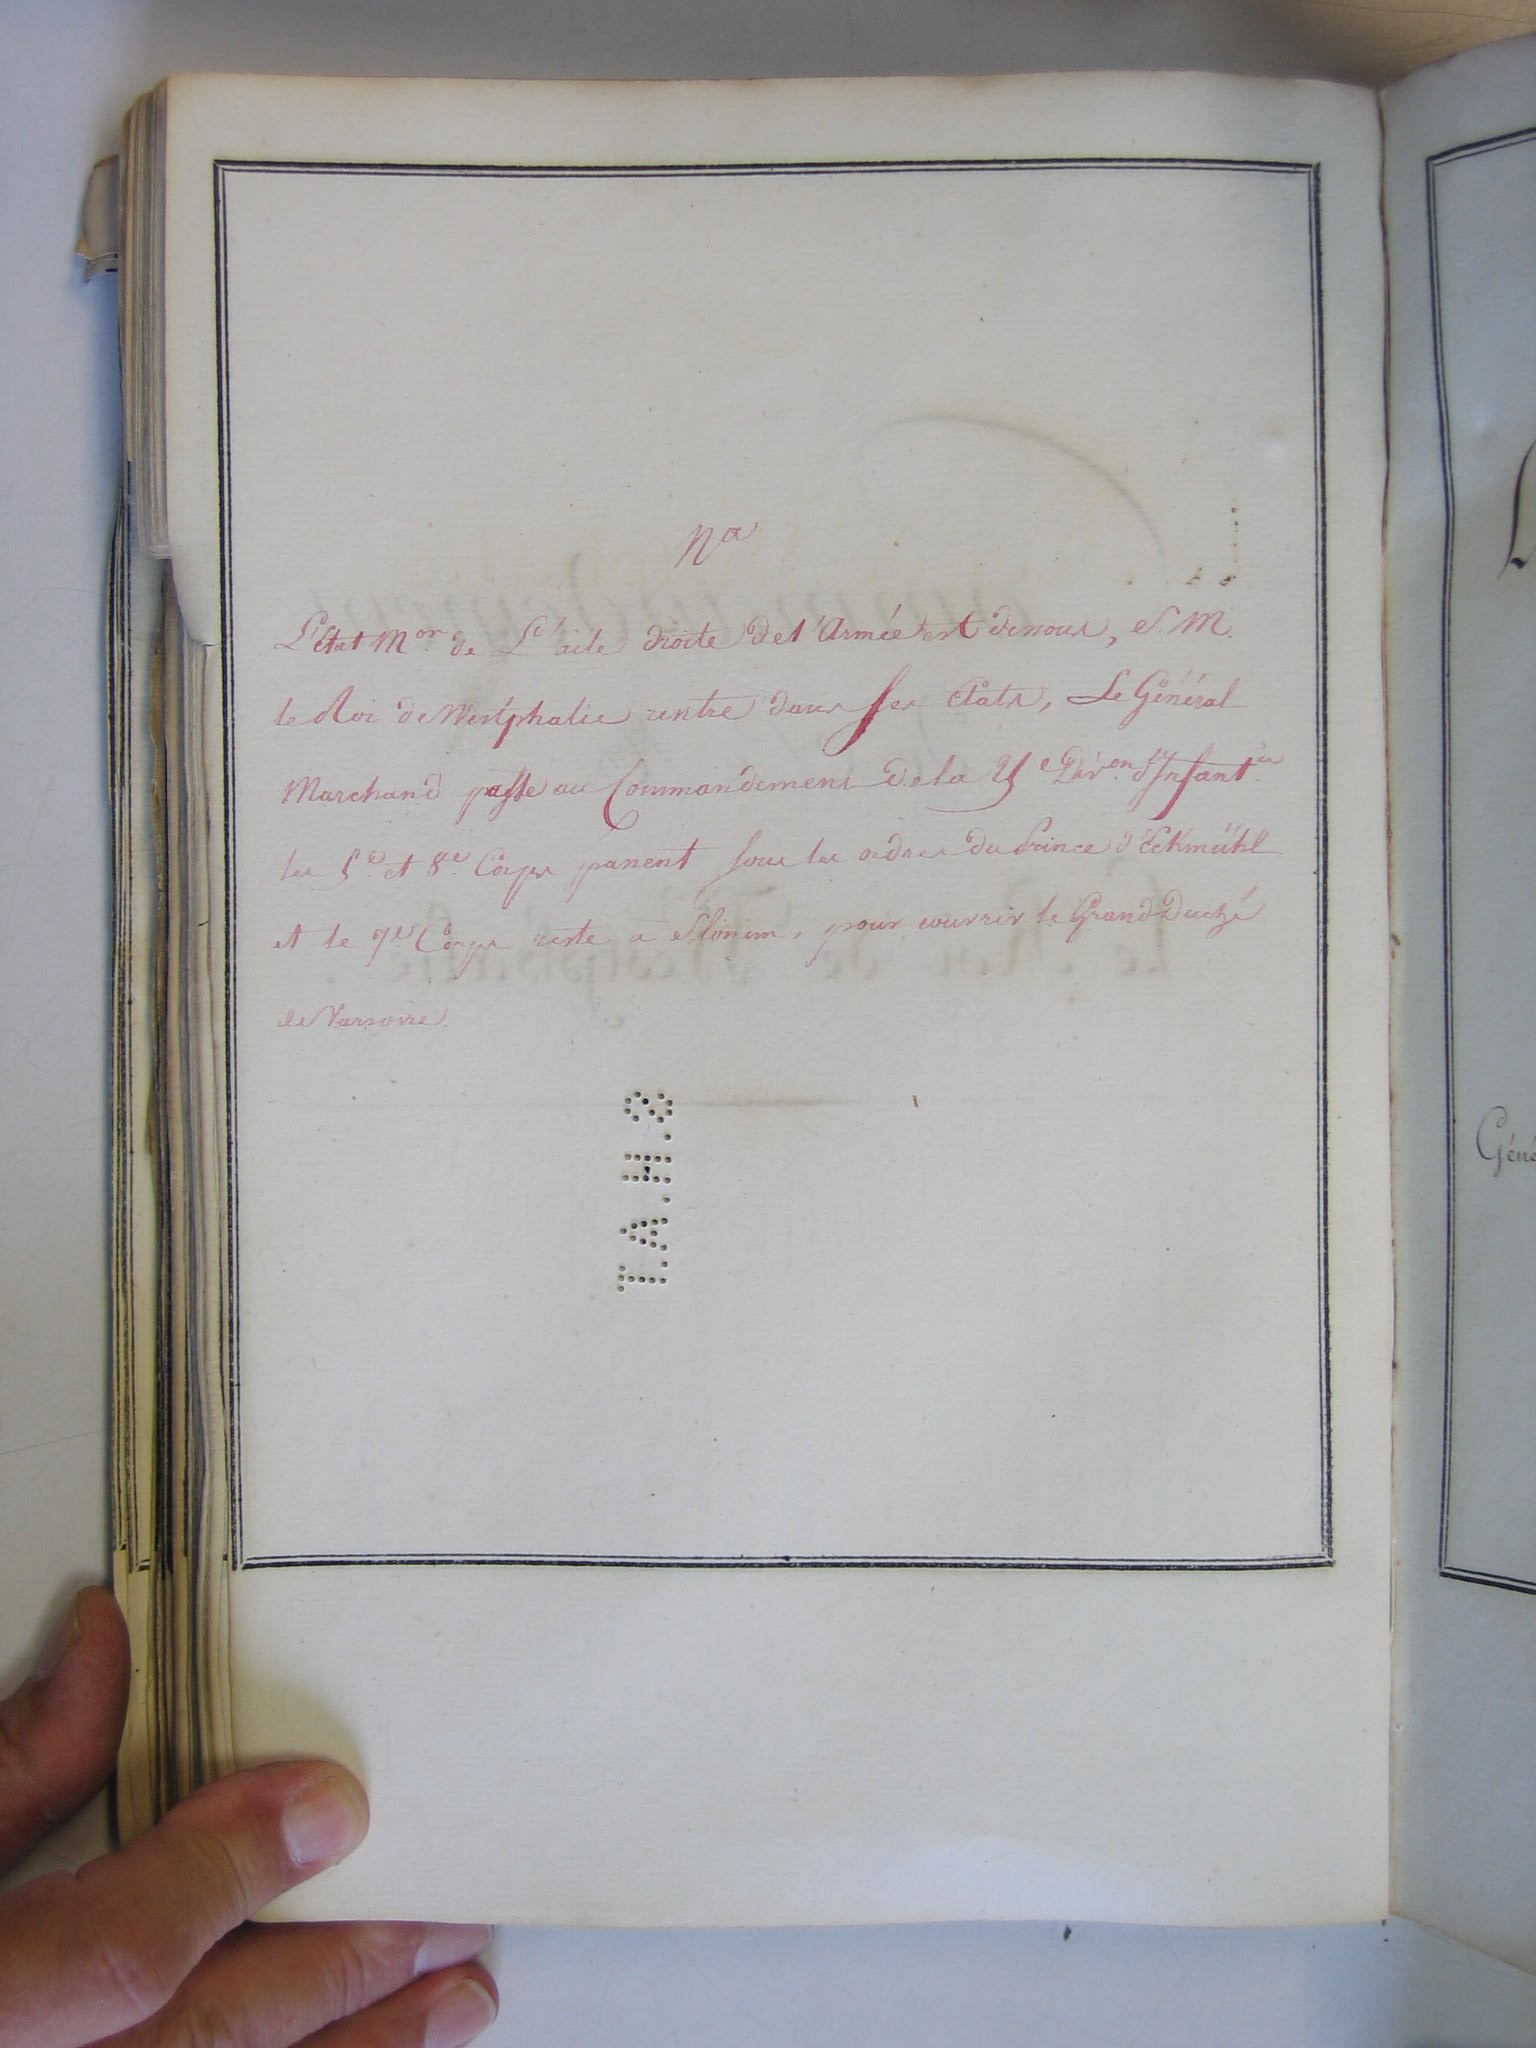 Na
L'état Mor de L'aile droite de l'Armée est dissous, S. M.
le Roi de Westphalie rentre dans ses états, Le Général
Marchand passe au Commandement de la 25e Divon d'Infantie
les 5e et 8e Corps passent sous les ordres du Prince d'Eckmühl
et le 7e Corps reste a Slonim, pour couvrir le Grand Duché
de Varsovie.
S.H.A.T.
Géné